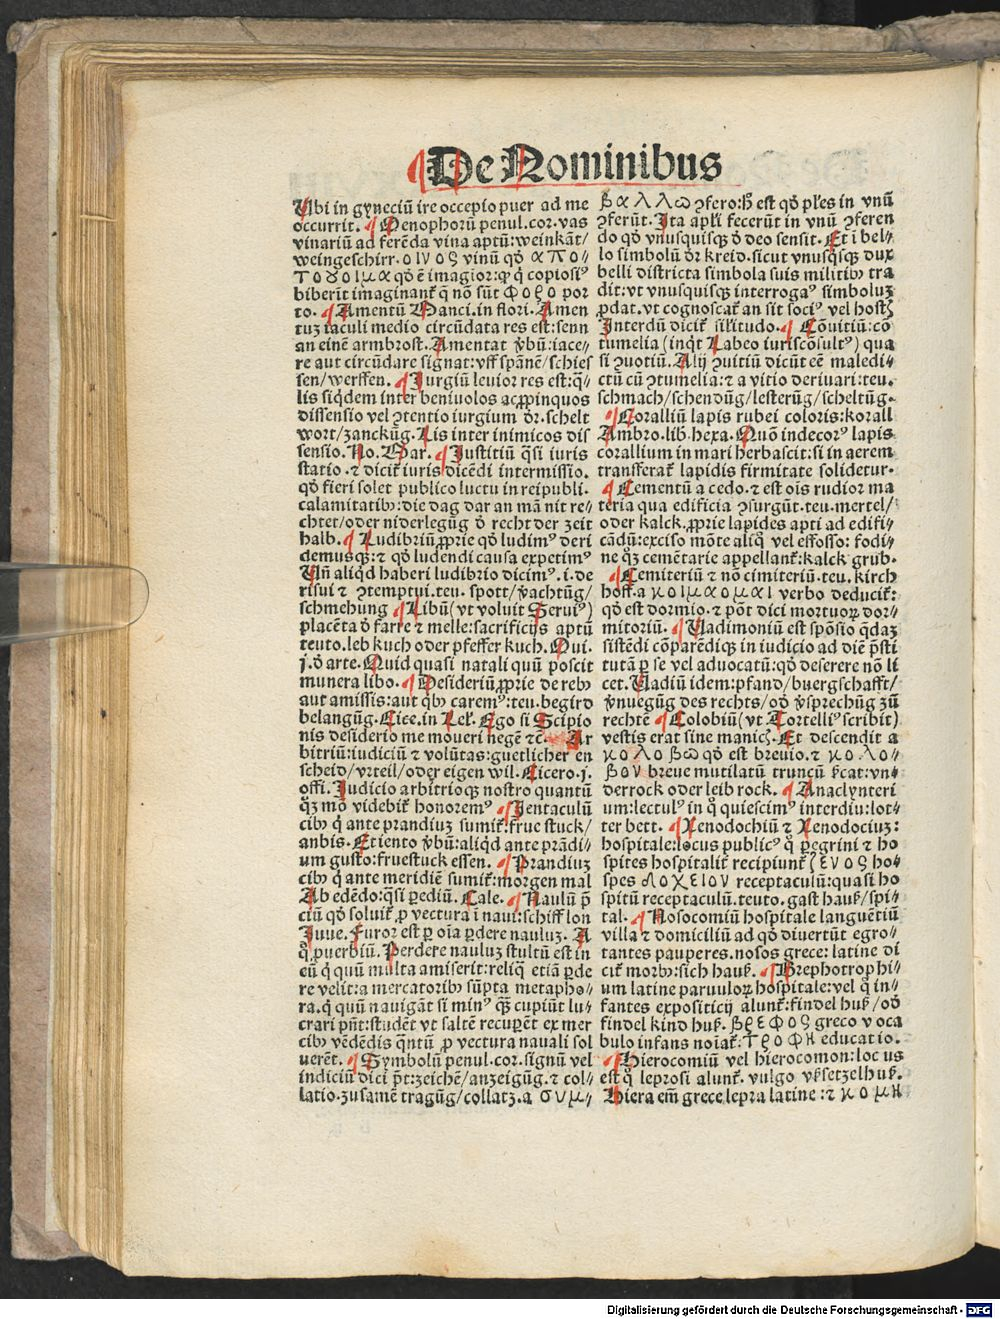 ¶ De Nominibus
Ubi in gyneciū ire occepio puer ad me
occurrit. ¶ Oenophorū penul. cor. vas
vinariū ad ferēda vina aptū: weinkāt/
weingeschirr. οινος vinū qđ απο⸗
τογοιμα qđ ē imagior: qꝛ q̇ copiosiꝰ
biberīt imaginant᷑ q̄ nō sūt φορο por
to. ¶ Amentū Manci. in flori. Amen
tuꝫ iaculi medio circūdata res est: senn
an einē armbrost. Amentat v̓bū: iace⸗
re aut circūdare signat: vff spānē/schies
sen/werffen. ¶ Jurgiū leuior res est: q̄⸗
lis siq̇dem inter beniuolos ac ꝓpinquos
dissensio vel ꝯtentio iurgium dr̄. schelt
wort/zanckūg. Lis inter inimicos dis
sensio. No. Mar. ¶ Justitiū q̄si iuris
statio. ⁊ dicit᷑ iuris dicēdi intermissio.
qđ fieri solet publico luctu in reipubli.
calamitatibꝰ: die dag dar an mā nit re⸗
chtet/oder niderlegūg đ recht der zeit
halb. ¶ Ludibriū ꝓprie qđ ludimꝰ deri
demusqꝫ: ⁊ qđ ludendi causa expetimꝰ
Uñ aliq̇d haberi ludibrio dicimꝰ. i. de
risui ⁊ ꝯtemptui. teu. spott/v̓achtūg/
schmehung ¶ Libū (vt voluit Seruiꝰ)
placēta đ farre ⁊ melle: sacrificijs aptū
teuto. leb kuch oder pfeffer kuch. Oui.
j. đ arte. Quid quasi natali quū poscit
munera libo. ¶ Desideriū ꝓprie de rebꝰ
aut amissis: aut q̇bꝰ caremꝰ: teu. begird
belangūg. Cice. in Lel. Ego si Scipio
nis desiderio me moueri negē ⁊c. Ar
bitriū: iudiciū ⁊ volūtas: guetlicher en
scheid/vrteil/oder eigen wil. Cicero. j.
offi. Judicio arbitrioqꝫ nostro quantū
q̄ꝫ mō videbit᷑ honoremꝰ ¶ Jentaculū
cibꝰ q̇ ante prandiuꝫ sumit᷑: frue stuck/
anbis. Et iento v̓bū: aliq̇d ante prādi⸗
um gusto: fruestuck essen. ¶ Prandiuꝫ
cibꝰ q̇ ante meridiē sumit᷑: morgen mal
Ab edēdo: q̄si p̱ediū. Cale. ¶ Naulū p̄
ciū qđ soluit᷑ ꝓ vectura ī naui: schiff lon
Juue. Furor est p̱ oīa p̱dere nauluꝫ. A
q̊ ꝓuerbiū. Perdere nauluꝫ stultū est in
eū q̇ quū multa amiserit: reliq̄ etiā p̱de
re velit: a mercatoribꝰ sūpta metapho⸗
ra. q̇ quū nauigāt si minꝰ q̄ꝫ cupiūt lu⸗
crari pn̄t: studēt vt saltē recup̱ēt ex mer
cibꝰ vēdēdis q̄ntū ꝓ vectura nauali sol
uerēt. ¶ Symbolū penul. cor. signū vel
indiciū dici p̄t: zeichē/anzeigūg. ⁊ col⸗
latio. zusamē tragūg/collatꝫ. a συμ⸗
βαλλω ꝯfero: ħ est qđ pl̄es in vnū
ꝯferūt. Ita apl̄i fecerūt in vnū ꝯferen
do qđ vnusquisqꝫ đ deo sensit. Et ī bel⸗
lo simbolū dr̄ kreid. sicut vnusq̇sqꝫ dux
belli districta simbola suis militibꝰ tra
dit: vt vnusquisqꝫ interrogaꝰ simboluꝫ
ꝓdat. vt cognoscat᷑ an sit sociꝰ vel hostꝭ
Interdū dicit᷑ sil̄itudo. ¶ Cōuitiū: cō
tumelia (inq̇t Labeo iuriscōsultꝰ) qua
si ꝯuotiū. Alij ꝯuitiū dicūt eē maledi⸗
ctū cū ꝯtumelia: ⁊ a vitio deriuari: teu.
schmach/schendūg/lesterūg/scheltūg.
¶ Coralliū lapis rubei coloris: korall
Ambro. lib. hexa. Quō indecorꝰ lapis
corallium in mari herbascit: si in aerem
transferat᷑ lapidis firmitate solidetur.
¶ Cementū a cedo. ⁊ est oīs rudior ma
teria qua edificia ꝯsurgūt. teu. mertel/
oder kalck. ꝓprie lapides apti ad edifi⸗
cādū: exciso mōte aliq̊ vel effosso: fodi⸗
ne q̄ꝫ cemētarie appellant᷑: kalck grub.
¶ Cemiteriū ⁊ nō cimiteriū. teu. kirch
hoff. a κοιμαομαι verbo deducit᷑:
qđ est dormio. ⁊ pōt dici mortuoꝝ dor⸗
mitoriū. ¶ Uadimoniū est spōsio q̄daꝫ
sistēdi cōparēdiqꝫ in iudicio ad diē p̄sti
tutā p̱ se vel aduocatū: qđ deserere nō li
cet. Uadiū idem: pfand/buergschafft/
v̓nuegūg des rechts/ođ v̓sprechūg zū
rechtē ¶ Colobiū (vt Tortelliꝰ scribit)
vestis erat sine manicꝭ. Et descendit a
κολοβω qđ est breuio. ⁊ κολο⸗
βον breue mutilatū truncū p̄cat: vn⸗
derrock oder leib rock. ¶ Anaclynteri
um: lectulꝰ in q̊ quiescimꝰ interdiu: lot⸗
ter bett. ¶ Xenodochiū ⁊ Xenodociuꝫ:
hospitale: locus publicꝰ q̊ p̱egrini ⁊ ho
spites hospitalit᷑ recipiunt᷑ ξενος ho⸗
spes δοχειον receptaculū: quasi ho
spitū receptaculū. teuto. gast hauß/spi⸗
tal. ¶ Nosocomiū hospitale languētiū
villa ⁊ domiciliū ad qđ diuertūt egro⸗
tantes pauperes. nosos grece: latine di
cit᷑ morbꝰ: sich hauß. ¶ Brephotrophi⸗
um latine paruuloꝝ hospitale: vel q̊ in⸗
fantes expositicij alunt᷑: findel huß/ođ
findel kind huß. βρεφος greco voca
bulo infans noīat᷑: τροφη educatio.
¶ Hierocomiū vel hierocomon: locus
est q̊ leprosi alunt᷑. vulgo vßsetzel huß.
Hiera em̄ grece, lepra latine: ⁊ κομη
Digitalisierung gefördert durch die Deutsche Forschungsgemeinschaft - DFG